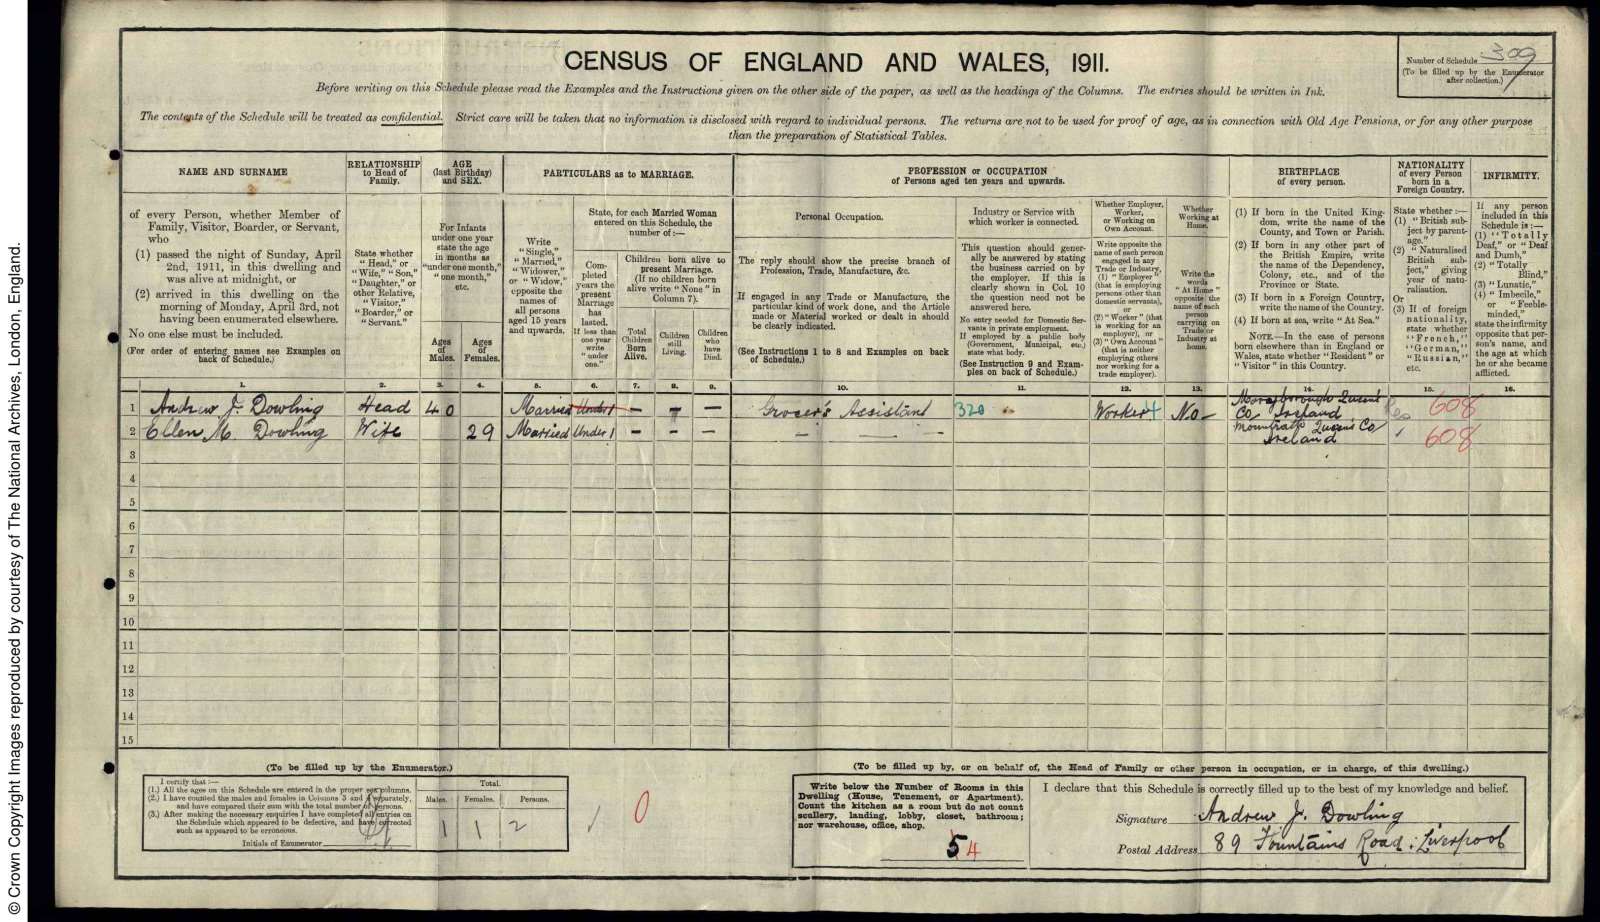 CENSUS OF ENGLAND AND WALES, 1911.
Number of Schedule 309
(To be filled up by the Enumerator
after collection.)
Before writing on this Schedule please read the Examples and the Instructions given on the other side of the paper, as well as the headings of the Columns. The entries should be written in Ink.
The contents of the Schedule will be treated as confidential. Strict care will be taken that no information is disclosed with regard to individual persons. The returns are not to be used for proof of age, as in connection with Old Age Pensions, or for any other purpose
than the preparation of Statistical Tables.
NAME AND SURNAME
of every Person, whether Member of
Family, Visitor, Boarder, or Servant,
who
(1) passed the night of Sunday, April
2nd, 1911, in this dwelling and
was alive at midnight, or
(2) arrived in this dwelling on the
morning of Monday, April 3rd, not
having been enumerated elsewhere.
No one else must be included.
(For order of entering names see Examples on
back of Schedule.)
RELATIONSHIP
to Head of
Family.
State whether
"Head," or
"Wife," "Son,"
"Daughter," or
other Relative,
"Visitor,"
"Boarder," or
"Servant."
AGE
(last Birthday)
and SEX.
For Infants
under one year
state the age
in months as
"under one month,"
"one month,"
etc.
Ages
of
Males.
Ages
of
Females.
PARTICULARS as to MARRIAGE.
Write
"Single,"
"Married,"
"Widower,"
or "Widow,"
opposite the
names of
all persons
aged 15 years
and upwards.
State, for each Married Woman
entered on this Schedule, the
number of:—
Com-
pleted
years the
present
Marriage
has
lasted.
If less than
one year
write
"under
one."
Children born alive to
present Marriage.
(If no children born
alive write "None" in
Column 7).
Total
Children
Born
Alive.
Children
still
Living.
Children
who
have
Died.
PROFESSION or OCCUPATION
of Persons aged ten years and upwards.
Personal Occupation.
The reply should show the precise branch of
Profession, Trade, Manufacture, &c.
If engaged in any Trade or Manufacture, the
particular kind of work done, and the Article
made or Material worked or dealt in should
be clearly indicated.
(See Instructions 1 to 8 and Examples on back
of Schedule.)
Industry or Service with
which worker is connected.
This question should gener-
ally be answered by stating
the business carried on by
the employer. If this is
clearly shown in Col. 10
the question need not be
answered here.
No entry needed for Domestic Ser-
vants in private employment.
If employed by a public body
(Government, Municipal, etc.)
state what body.
(See Instruction 9 and Exam-
ples on back of Schedule.)
Whether Employer,
Worker,
or Working on
Own Account.
Write opposite the
name of each person
engaged in any
Trade or Industry,
(1) "Employer"
(that is employing
persons other than
domestic servants),
or
(2) "Worker" (that
is working for an
employer), or
(3) "Own Account"
(that is neither
employing others
nor working for a
trade employer).
Whether
Working at
Home.
Write the
words
"At Home"
opposite the
name of each
person
carrying on
Trade or
Industry at
home.
BIRTHPLACE
of every person.
(1) If born in the United King-
dom, write the name of the
County, and Town or Parish.
(2) If born in any other part of
the British Empire, write
the name of the Dependency,
Colony, etc., and of the
Province or State.
(3) If born in a Foreign Country,
write the name of the Country.
(4) If born at sea, write "At Sea."
NOTE.—In the case of persons
born elsewhere than in England or
Wales, state whether "Resident" or
"Visitor" in this Country.
NATIONALITY
of every Person
born in a
Foreign Country.
State whether:—
(1) "British sub-
ject by parent-
age."
(2) "Naturalised
British sub-
ject," giving
year of natu-
ralisation.
Or
(3) If of foreign
nationality,
state whether
"French,"
"German,"
"Russian,"
etc.
INFIRMITY.
If any person
included in this
Schedule is:—
(1) "Totally
Deaf," or "Deaf
and Dumb,"
(2) "Totally
Blind,"
(3) "Lunatic,"
(4) "Imbecile,"
or "Feeble-
minded,"
state the infirmity
opposite that per-
son's name, and
the age at which
he or she became
afflicted.
1. 2. 3. 4. 5. 6. 7. 8. 9. 10. 11. 12. 13. 14. 15. 16.
1 Andrew J. Dowling Head 40 Married Under 1 – – – Grocer's Assistant 320 Worker 4 No – Maryborough Queens Co Ireland Res 608
2 Ellen M. Dowling Wife 29 Married Under 1 – – – – — — Mountrath Queens Co Ireland 608
3
4
5
6
7
8
9
10
11
12
13
14
15
(To be filled up by the Enumerator.)
I certify that:—
(1.) All the ages on this Schedule are entered in the proper sex columns.
(2.) I have counted the males and females in Columns 3 and 4 separately,
and have compared their sum with the total number of persons.
(3.) After making the necessary enquiries I have completed all entries on
the Schedule which appeared to be defective, and have corrected
such as appeared to be erroneous.
Initials of Enumerator
Total.
Males. Females. Persons.
1 1 2
0
(To be filled up by, or on behalf of, the Head of Family or other person in occupation, or in charge, of this dwelling.)
Write below the Number of Rooms in this
Dwelling (House, Tenement, or Apartment).
Count the kitchen as a room but do not count
scullery, landing, lobby, closet, bathroom;
nor warehouse, office, shop.
5 4
I declare that this Schedule is correctly filled up to the best of my knowledge and belief.
Signature Andrew J. Dowling
Postal Address 89 Fountains Road: Liverpool
© Crown Copyright Images reproduced by courtesy of The National Archives, London, England.